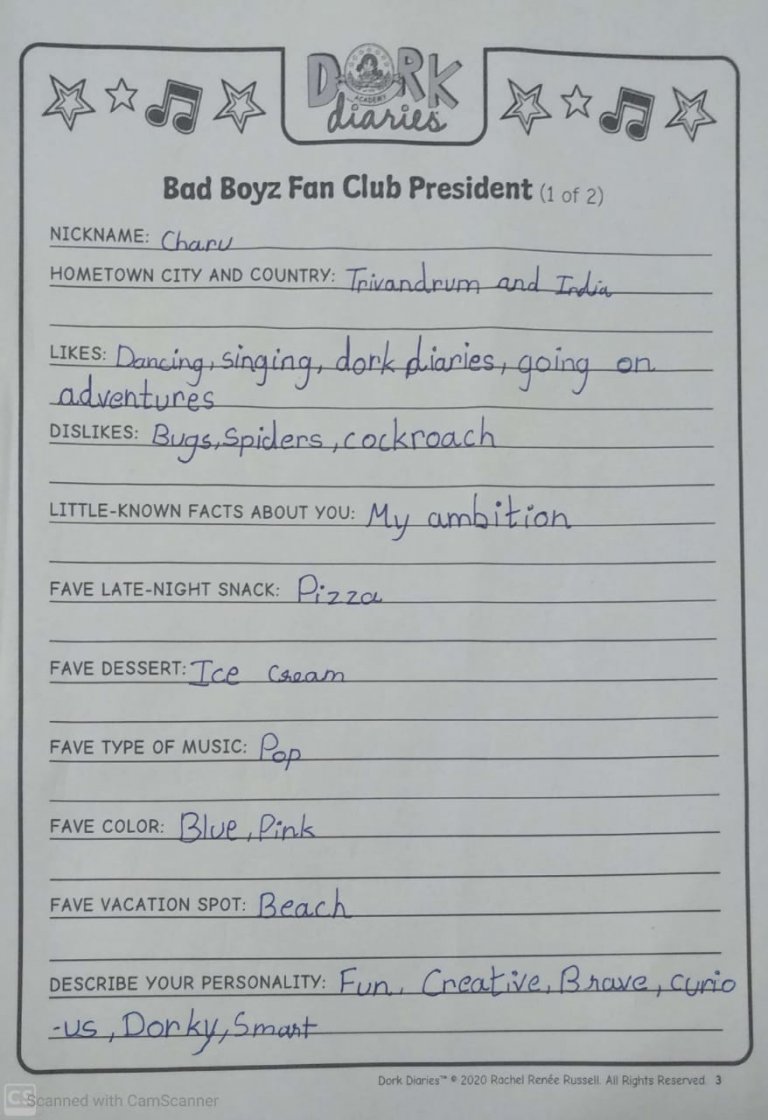 DORK
ACADEMY
diaries
Bad Boyz Fan Club President (1 of 2)
NICKNAME: Charu
HOMETOWN CITY AND COUNTRY: Trivandrum and India
LIKES: Dancing, singing, dork diaries, going on
adventures
DISLIKES: Bugs, Spiders, cockroach
LITTLE-KNOWN FACTS ABOUT YOU: My ambition
FAVE LATE-NIGHT SNACK: Pizza
FAVE DESSERT: Ice cream
FAVE TYPE OF MUSIC: Pop
FAVE COLOR: Blue, Pink
FAVE VACATION SPOT: Beach
DESCRIBE YOUR PERSONALITY: Fun, Creative, Brave, curio
-us, Dorky, Smart
Dork Diaries™ © 2020 Rachel Renée Russell. All Rights Reserved. 3
CS Scanned with CamScanner